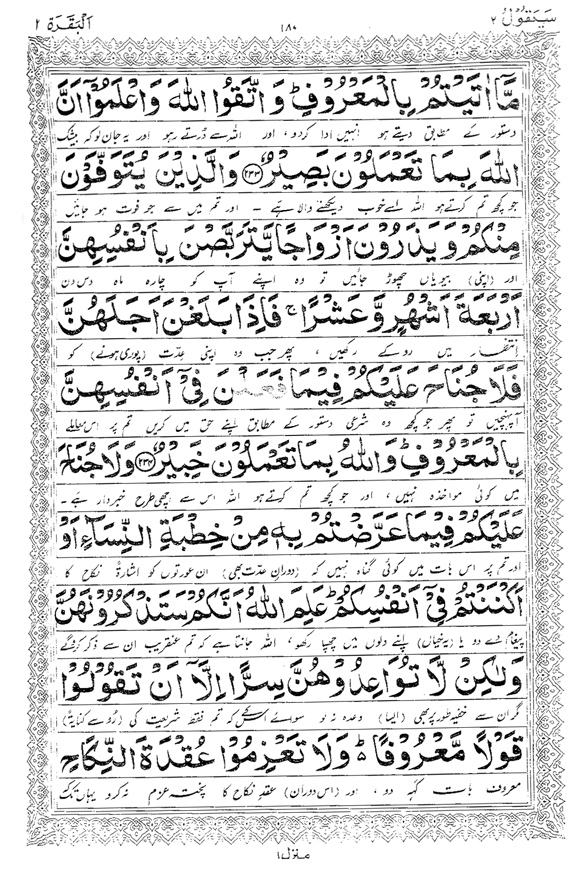 سَيَقُوْلُ ٢
١٨٠
اَلْبَقَرَة ٢
مَّاۤ اٰتَيْتُمْ بِالْمَعْرُوْفِ ؕ وَ اتَّقُوا اللّٰهَ وَ اعْلَمُوْۤا اَنَّ
دستور کے مطابق دیتے ہو انہیں ادا کر دو، اور اللہ سے ڈرتے رہو اور یہ جان لو کہ بیشک
اللّٰهَ بِمَا تَعْمَلُوْنَ بَصِيْرٌ ﴿٢٣٣﴾ وَ الَّذِيْنَ يُتَوَفَّوْنَ
جو کچھ تم کرتے ہو اللہ اسے خوب دیکھنے والا ہے۔ اور تم میں سے جو فوت ہو جائیں
مِنْكُمْ وَ يَذَرُوْنَ اَزْوَاجًا يَّتَرَبَّصْنَ بِاَنْفُسِهِنَّ
اور (اپنی) بیویاں چھوڑ جائیں تو وہ اپنے آپ کو چار ماہ دس دن
اَرْبَعَةَ اَشْهُرٍ وَّ عَشْرًا ۚ فَاِذَا بَلَغْنَ اَجَلَهُنَّ
انتظار میں روکے رکھیں، پھر جب وہ اپنی عدت (پوری ہونے) کو
فَلَا جُنَاحَ عَلَيْكُمْ فِيْمَا فَعَلْنَ فِيْۤ اَنْفُسِهِنَّ
آ پہنچیں تو پھر جو کچھ وہ شرعی دستور کے مطابق اپنے حق میں کریں تم پر اس معاملے
بِالْمَعْرُوْفِ ؕ وَ اللّٰهُ بِمَا تَعْمَلُوْنَ خَبِيْرٌ ﴿٢٣٤﴾ وَ لَا جُنَاحَ
میں کوئی مواخذہ نہیں، اور جو کچھ تم کرتے ہو اللہ اس سے اچھی طرح خبردار ہے۔
عَلَيْكُمْ فِيْمَا عَرَّضْتُمْ بِهٖ مِنْ خِطْبَةِ النِّسَآءِ اَوْ
اور تم پر اس بات میں کوئی گناہ نہیں کہ (دورانِ عدت بھی) ان عورتوں کو اشارۃً نکاح کا
اَكْنَنْتُمْ فِيْۤ اَنْفُسِكُمْ ؕ عَلِمَ اللّٰهُ اَنَّكُمْ سَتَذْكُرُوْنَهُنَّ
پیغام دے دو یا (یہ خیال) اپنے دلوں میں چھپا رکھو، اللہ جانتا ہے کہ تم عنقریب ان سے ذکر کرو گے
وَ لٰكِنْ لَّا تُوَاعِدُوْهُنَّ سِرًّا اِلَّاۤ اَنْ تَقُوْلُوْا
مگر ان سے خفیہ طور پر بھی (ایسا) وعدہ نہ لو سوائے اس کے کہ تم فقط شریعت کی (رو سے کنایۃً)
قَوْلًا مَّعْرُوْفًا ؕ وَ لَا تَعْزِمُوْا عُقْدَةَ النِّكَاحِ
معروف بات کہہ دو، اور (اس دوران) عقدِ نکاح کا پختہ عزم نہ کرو یہاں تک
منزل ١